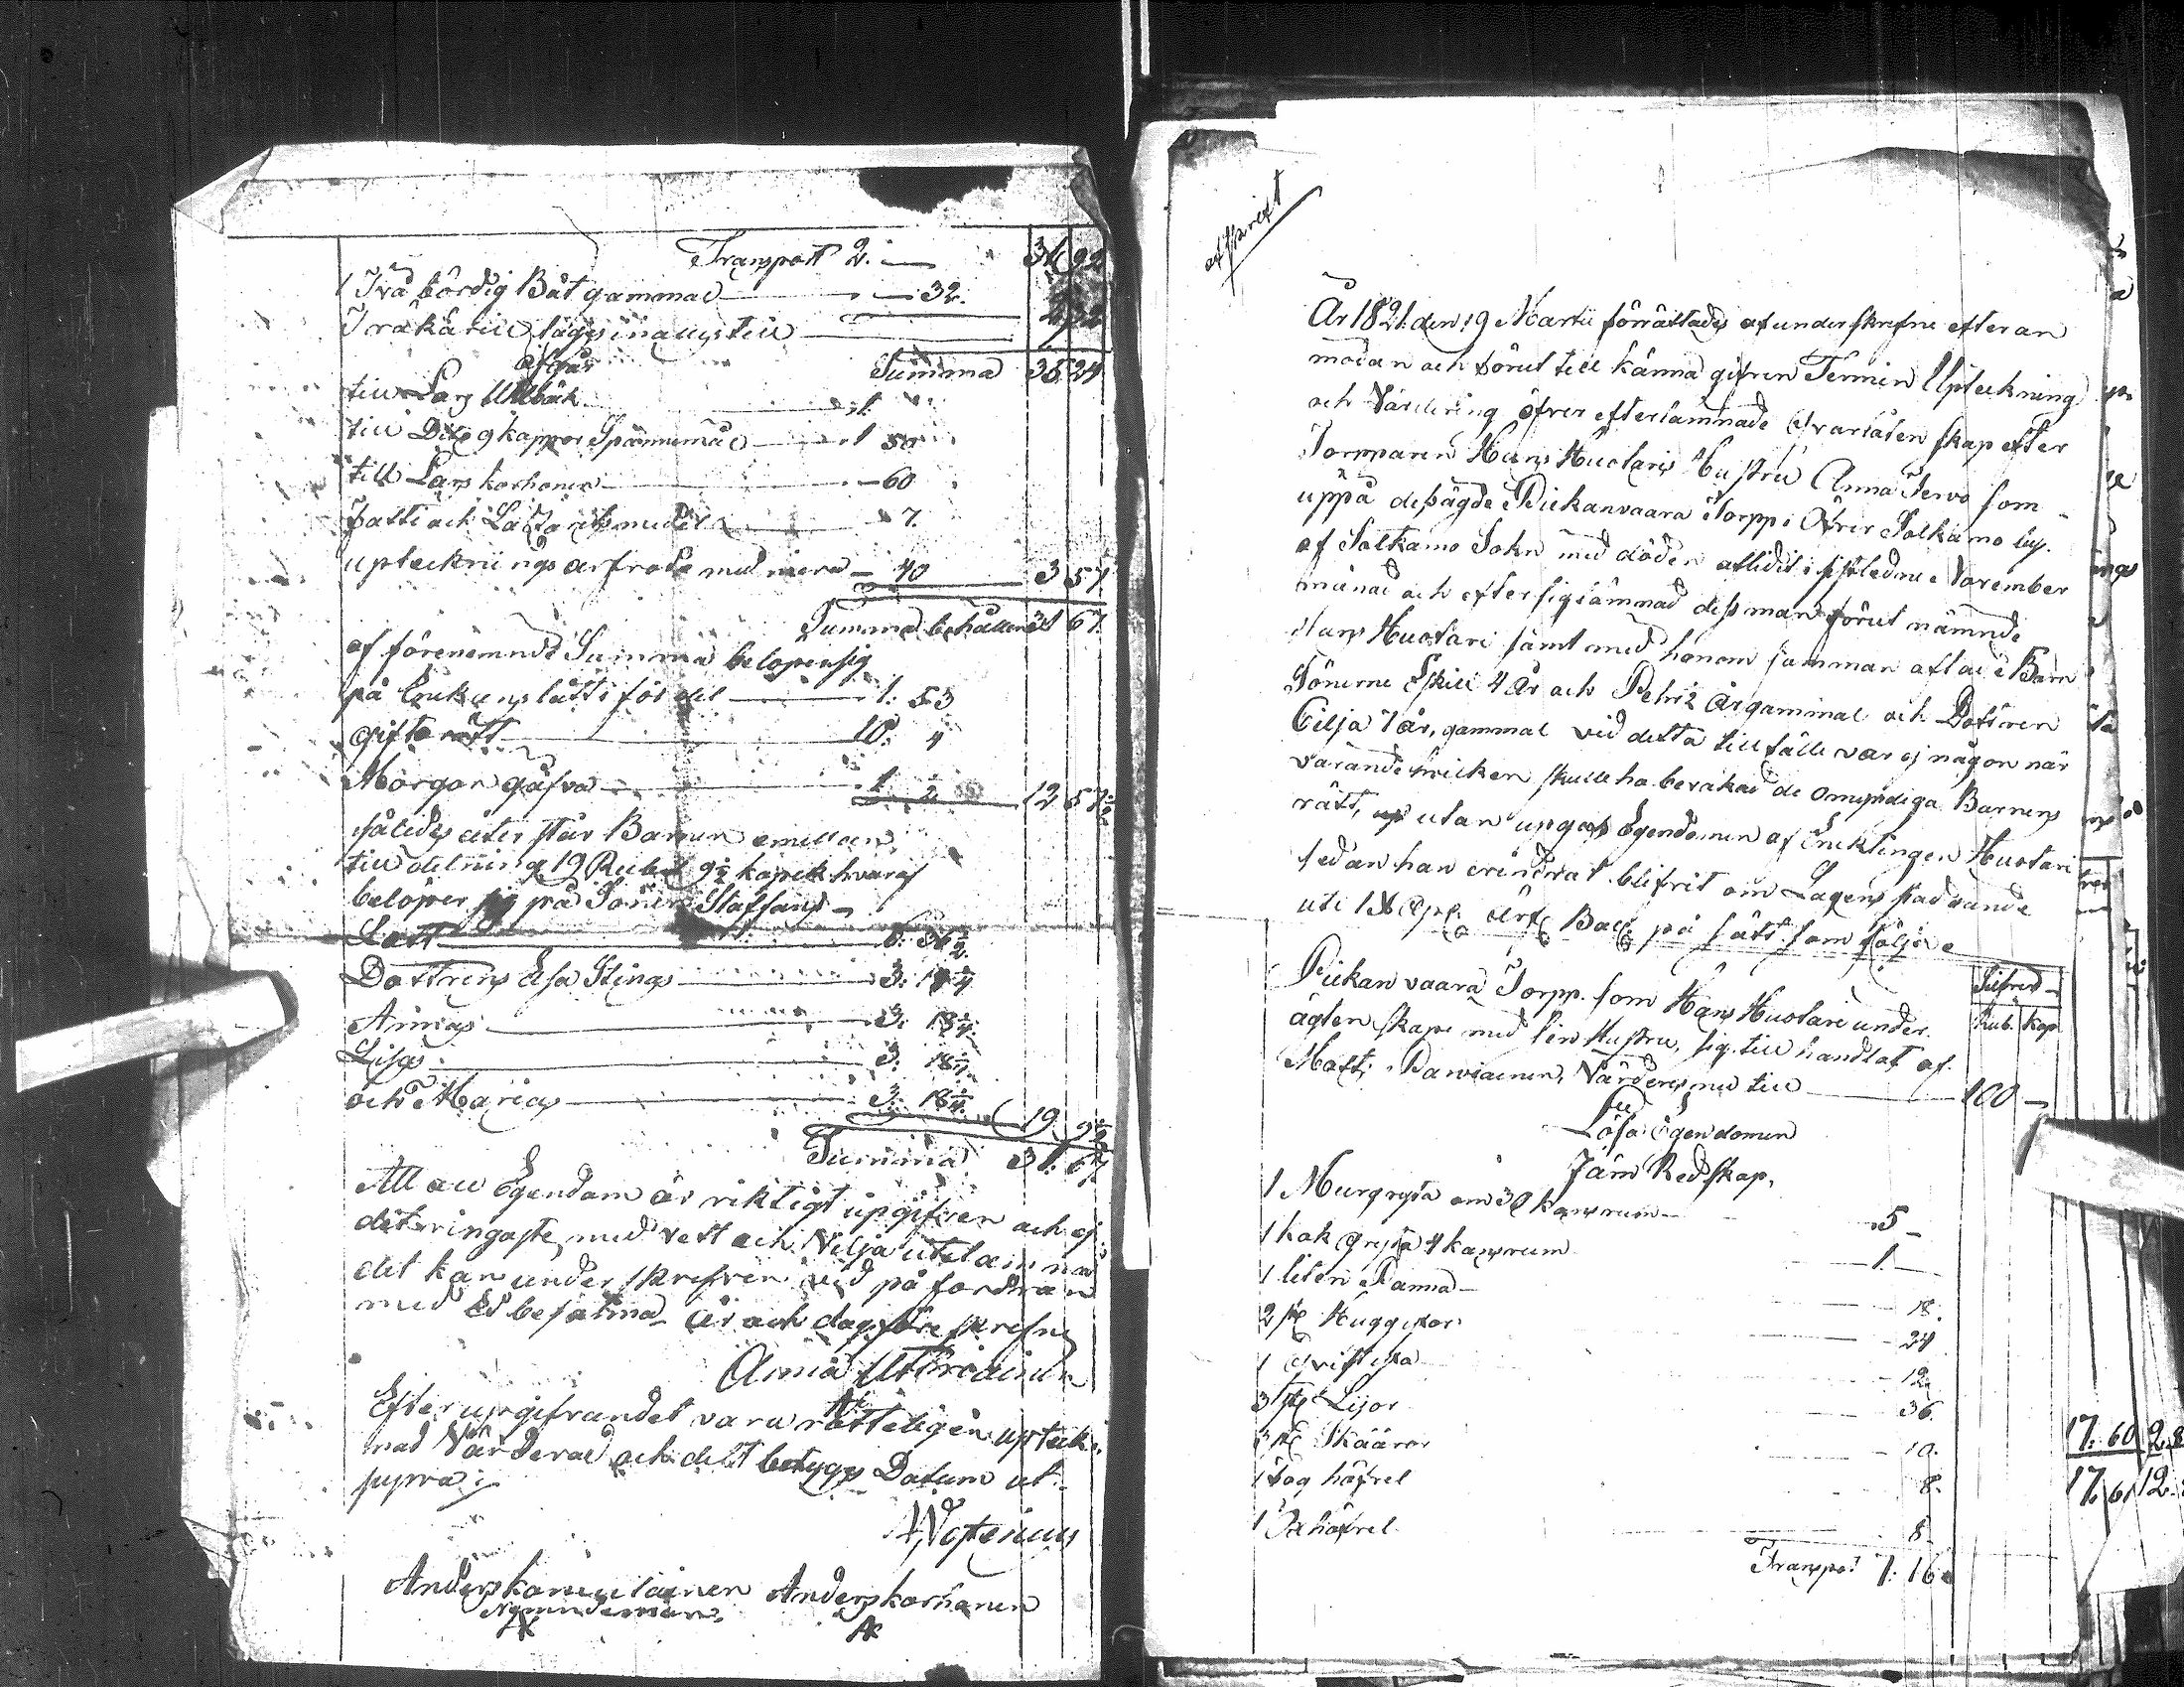 Transport 2. — 32 92
1 Två bördig Båt gammal — 32. 2 32
Träkäril läggs inalles till —
Summa 35 24
afgår
till Lars Uhlbäck — 1.
till Dito 9 kappor Spannemål — 1 50
till Lars korhonen — 60
fatti och Lazaretsmedel — 7.
uptecknings arfvode med mera — 40 3 57.
Summa behållen 31 67.
af förenemnde Summa beloper sig
på Enkans lått i fördel — 1. 53
gifto rätt — 10. 4
Morgon gåfva — 1 2 12 57 1/2
således återstår Barnen emellan
till delning 19 Rubel 9 1/2 kopek hvaraf
belöper sig på Sonen Staffans —
Lott — 6. 36 1/2
Dottrens Elsa Stinas — 3. 18 1/4
Annas — 3. 18 1/4
Lisas — 3. 18 1/4
och Marias — 3. 18 1/4 19 9 1/2
Summa 31. 67
Att all Egendom är riktigt upgifven och ej
det ringaste med vett och Vilja utelämnad
det kan underskrefven vid på fordran
med Ed besanna År och dag före skrefne
Anna
Efter upgifvandet vara rätteligen upteck-
nad Värderad och delt betygas Datum ut
supra
Anders Anders korhonen
Nämndeman
afskrift
År 1821. den 19 Martii förrättades af underskrefne efter an
modan och förut till känna gifven Termin Upteckning
och Värdering öfver efterlämnade qvarlåtenskap efter
Torpparen Hans Huotaris Hustru Anna Tervo som
uppå desägde Piekanvaara Torpp i Öfver Sotkamo by.
af Sotkamo Sokn med döden aflidit i sistledne November
månad och efter sig lämnad dess man förut nämnde
Hans Huotari samt med honom samman aflade Barn
Sönerne Eskill 4 År och Petri 2 År gammal och Dottren
Cilja 7 år, gammal vid detta tillfälle var ej någon när
varande hvilken skulle ha bevakad de omyndiga Barnens
rätt, utan upgafs Egendomen af Enklingen Huotari
sedan han erindrat blifvit om Lagens stadgande
uti Cap: Ärf Balk på sätt som följer
Silfver
Rub. kop
Piekanvaara Torpp. som Hans Huotari under
ägtenskape med sin Hustru, sig till handlat af
Matts Parviainen, Värderes nu till — 100 —
Lösa Egendomen
Järn Redskap,
1 Murgryta om 30 kansrum — 5 —
1 kok gryta 4 kansrum — 1 —
1 liten Panna — 18.
2 st Huggyxor — 24
1 qvistyxa — 12.
3 st Lijor — 36.
3 st Skäror — 10.
1 Tog häfvel — 8.
1 Ox häfvel — 8
Transport 7. 16
17. 60 2.
17. 61 12.